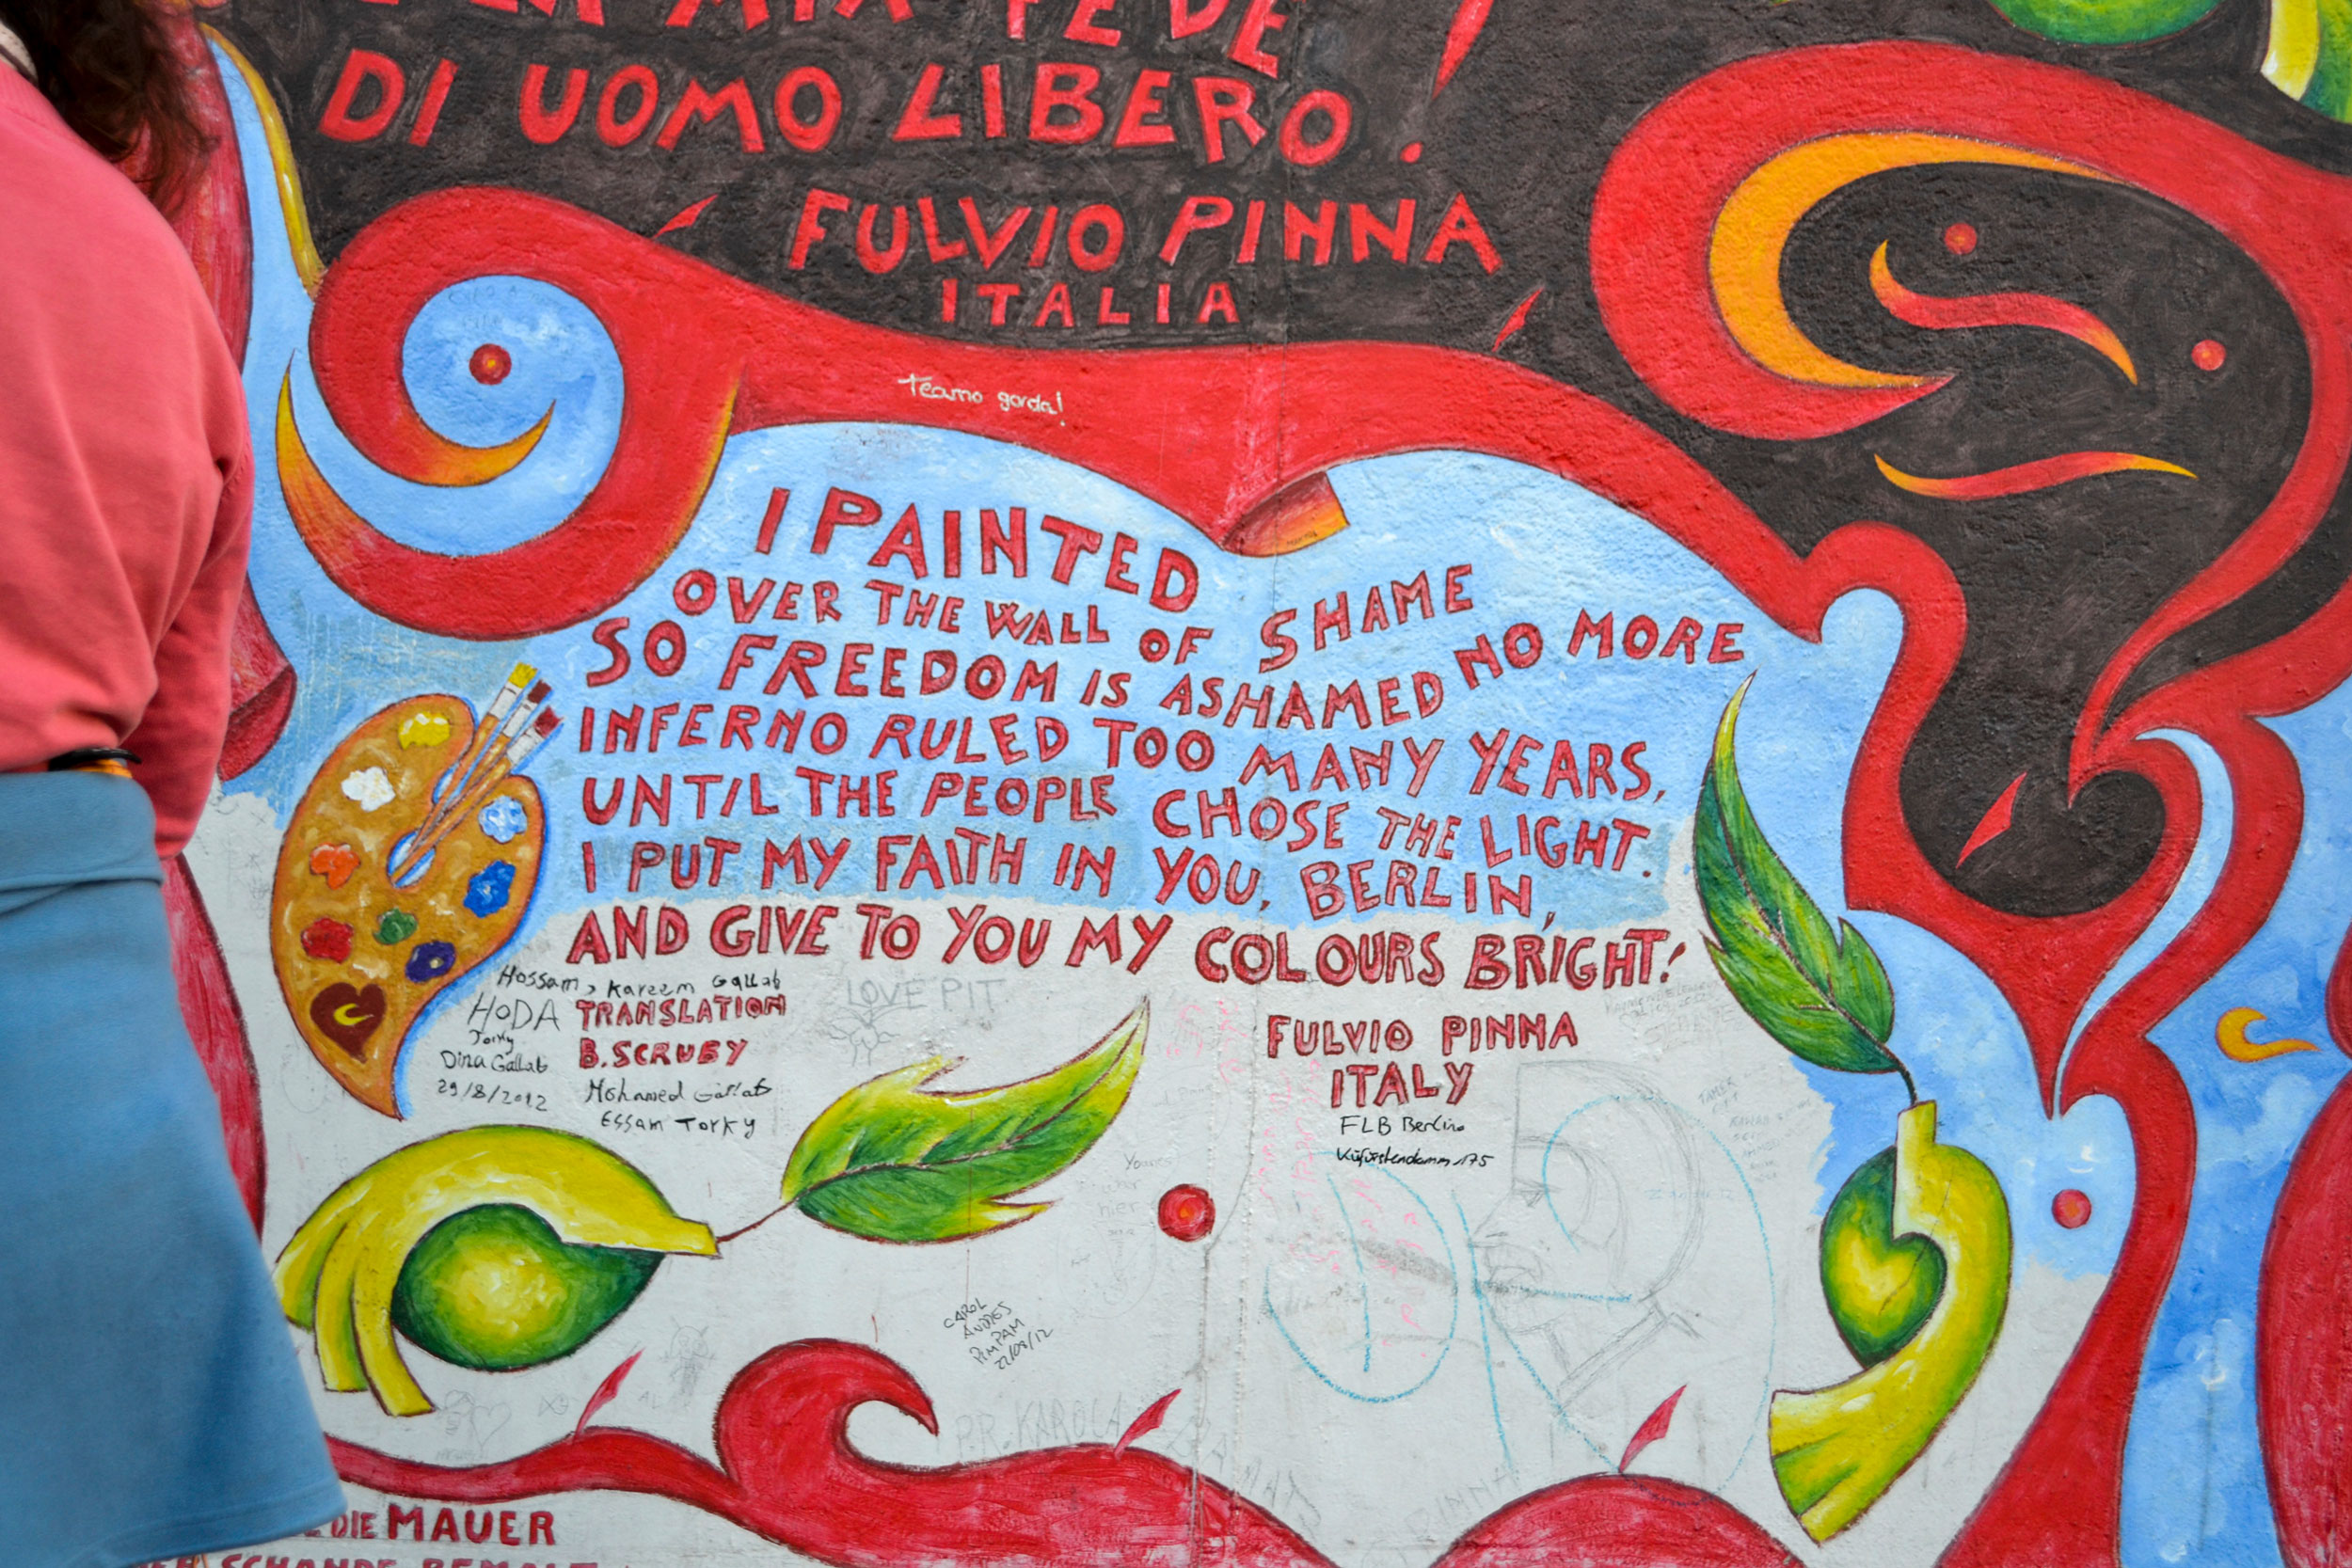 LA MIA FEDE
DI UOMO LIBERO.
FULVIO PINNA
ITALIA
Teamo gorda!
I PAINTED
OVER THE WALL OF SHAME
SO FREEDOM IS ASHAMED NO MORE
INFERNO RULED TOO MANY YEARS,
UNTIL THE PEOPLE CHOSE THE LIGHT.
I PUT MY FAITH IN YOU, BERLIN,
AND GIVE TO YOU MY COLOURS BRIGHT!
Hossam, Kareem Gallab
HODA
Torky
Dina Gallab
29/8/2012
TRANSLATION
B. SCRUBY
Mohamed Gallab
Essam Torky
LOVE PIT
FULVIO PINNA
ITALY
FLB Berlino
Küfürstendamm 175
hier
CAROL
ANDRES
PIMPAM
22/08/12
P.R. KAROLA
DIE MAUER
SCHANDE BEMALT